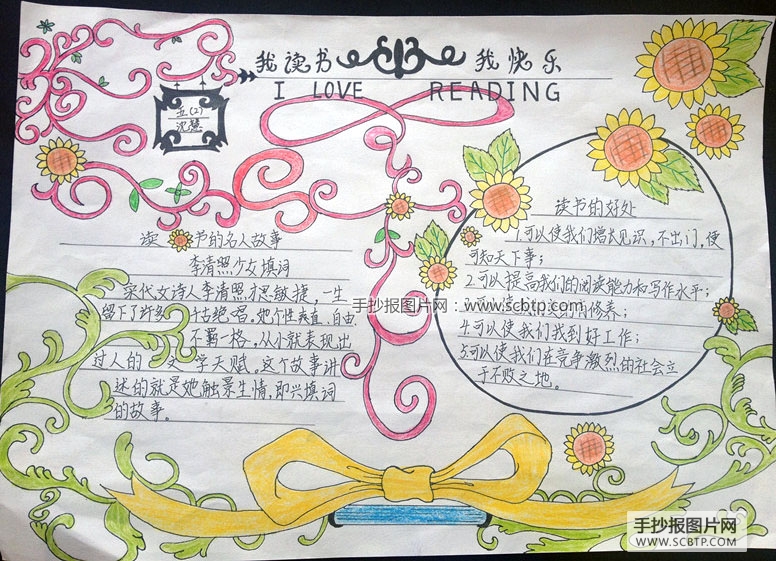 我读书 我快乐
I LOVE READING
五(2)
读书的名人故事
李清照少女填词
宋代女诗人李清照才思敏捷，一生
留下了许多千古绝唱。她个性率直、自由、
不羁一格，从小就表现出
过人的文学天赋。这个故事讲
述的就是她触景生情，即兴填词
的故事。
读书的好处
1.可以使我们增长见识，不出门，便
可知天下事；
2.可以提高我们的阅读能力和写作水平；
修养；
4.可以使我们找到好工作；
5.可以使我们在竞争激烈的社会立
于不败之地。
手抄报图片网：www.scbtp.com
手抄报图片网
WWW.SCBTP.COM